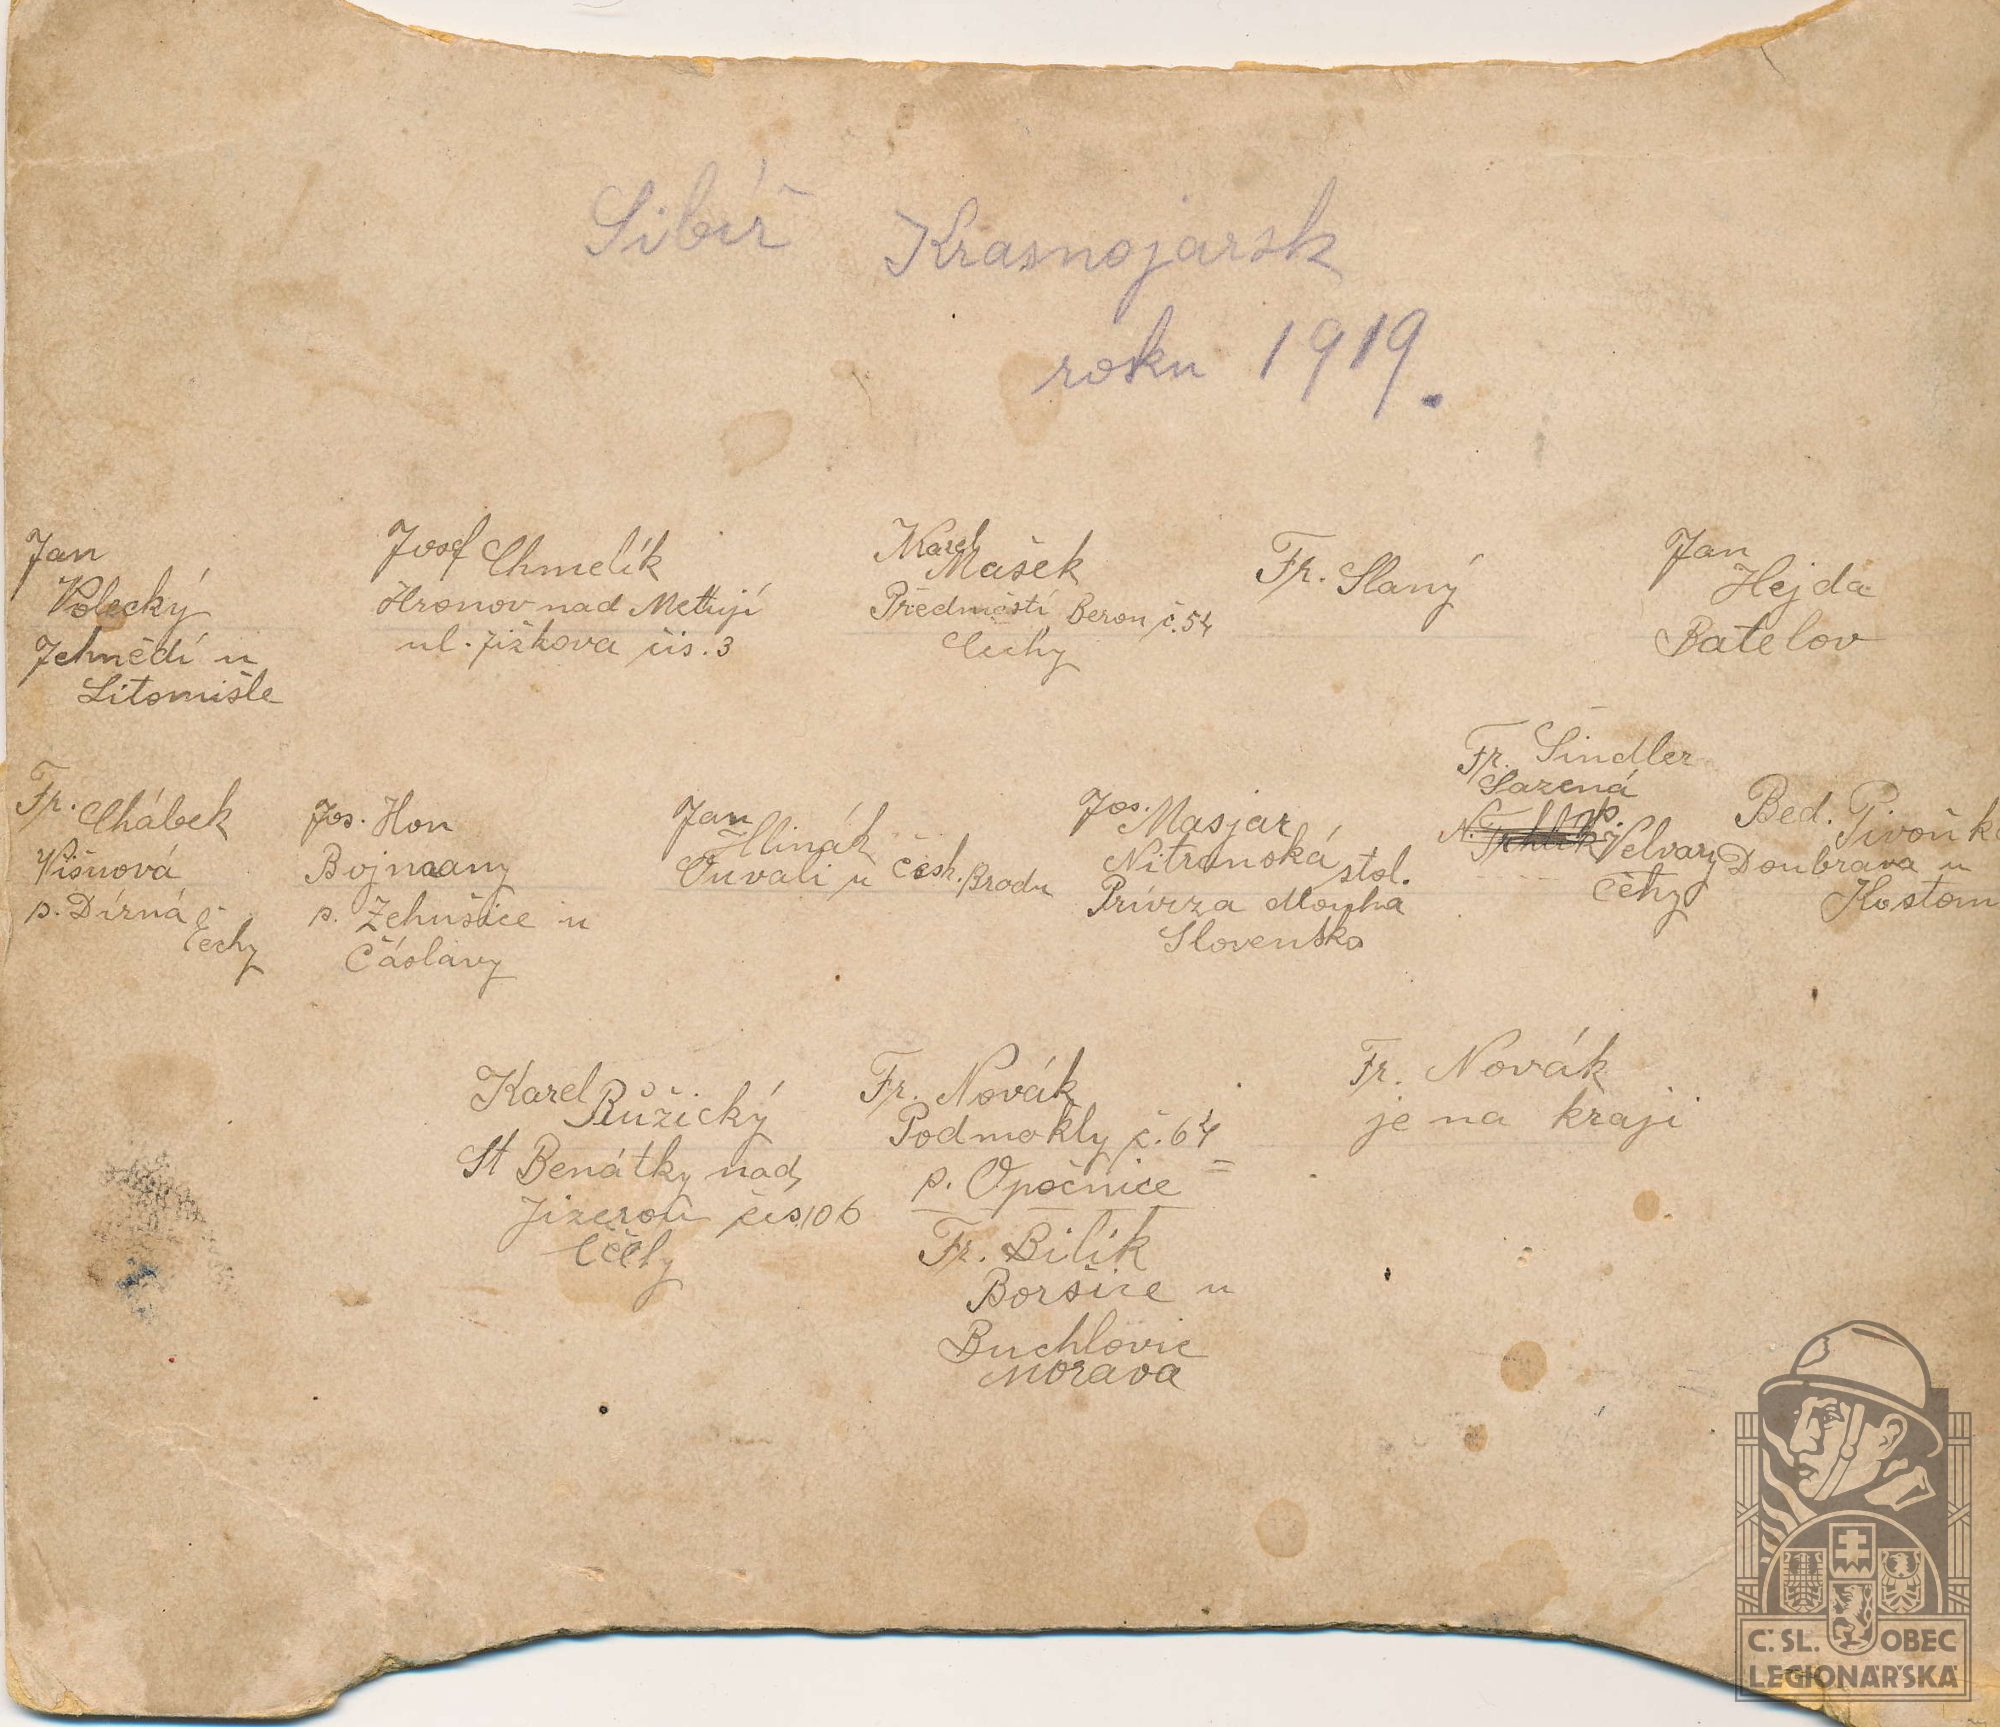 Sibíř Krasnojarsk
roku 1919.
Jan
Volecký
Jehnědí u
Litomišle
Josef Chmelík
Hronov nad Metují
ul. Žižkova čis. 3
Karel
Mašek
Předměstí Beroun č. 54
Čechy
Fr. Slaný
Jan
Hejda
Batelov
Fr. Chábek
Višňová
p. Dírná
Čechy
Jos. Hon
Bojmany
p. Žehušice u
Čáslavy
Jan
Hlinák
Ouvali u Česk. Brodu
Jos. Masjar
Nitranská stol.
Prívrza dlouhá
Slovensko
Fr. Šindler
Sazená
p.
N. Velvary
Čehy
Bed. Pivoňk
Doubrava u
Kostom
Karel
Růžický
St Benátky nad
Jizeroů čis 106
Čechy
Fr. Novák
Podmokly č. 64
p. Opočnice
Fr. Bilík
Boršice u
Buchlovic
Morava
Fr. Novák
je na kraji
Č.SL. OBEC
LEGIONÁŘSKÁ